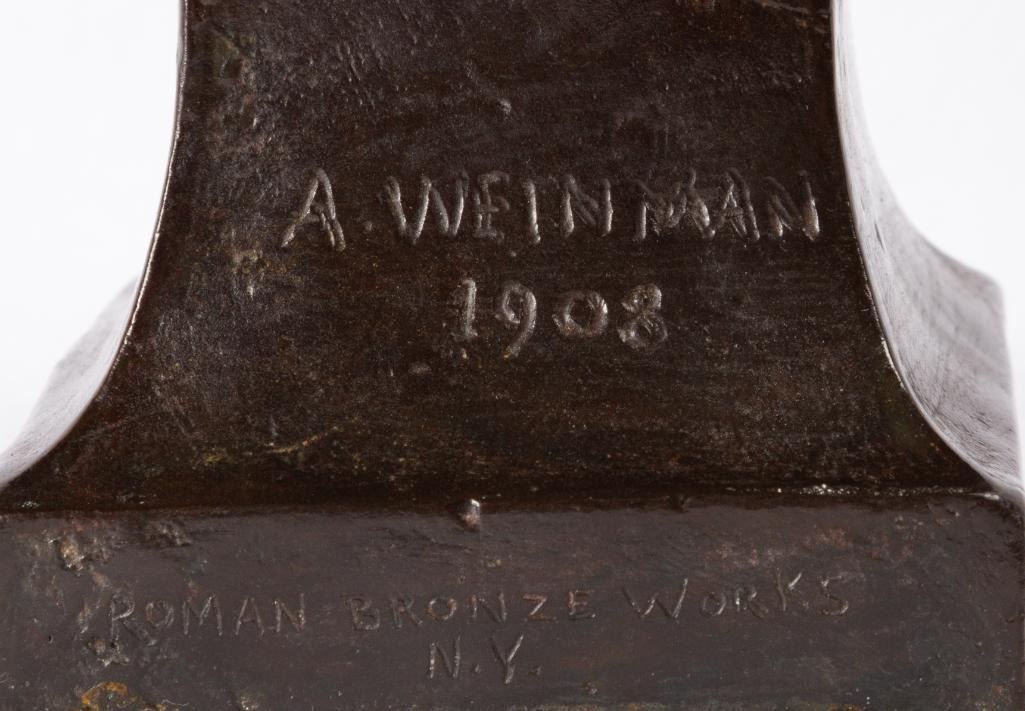 A. WEINMAN
1908
ROMAN BRONZE WORKS
N.Y.